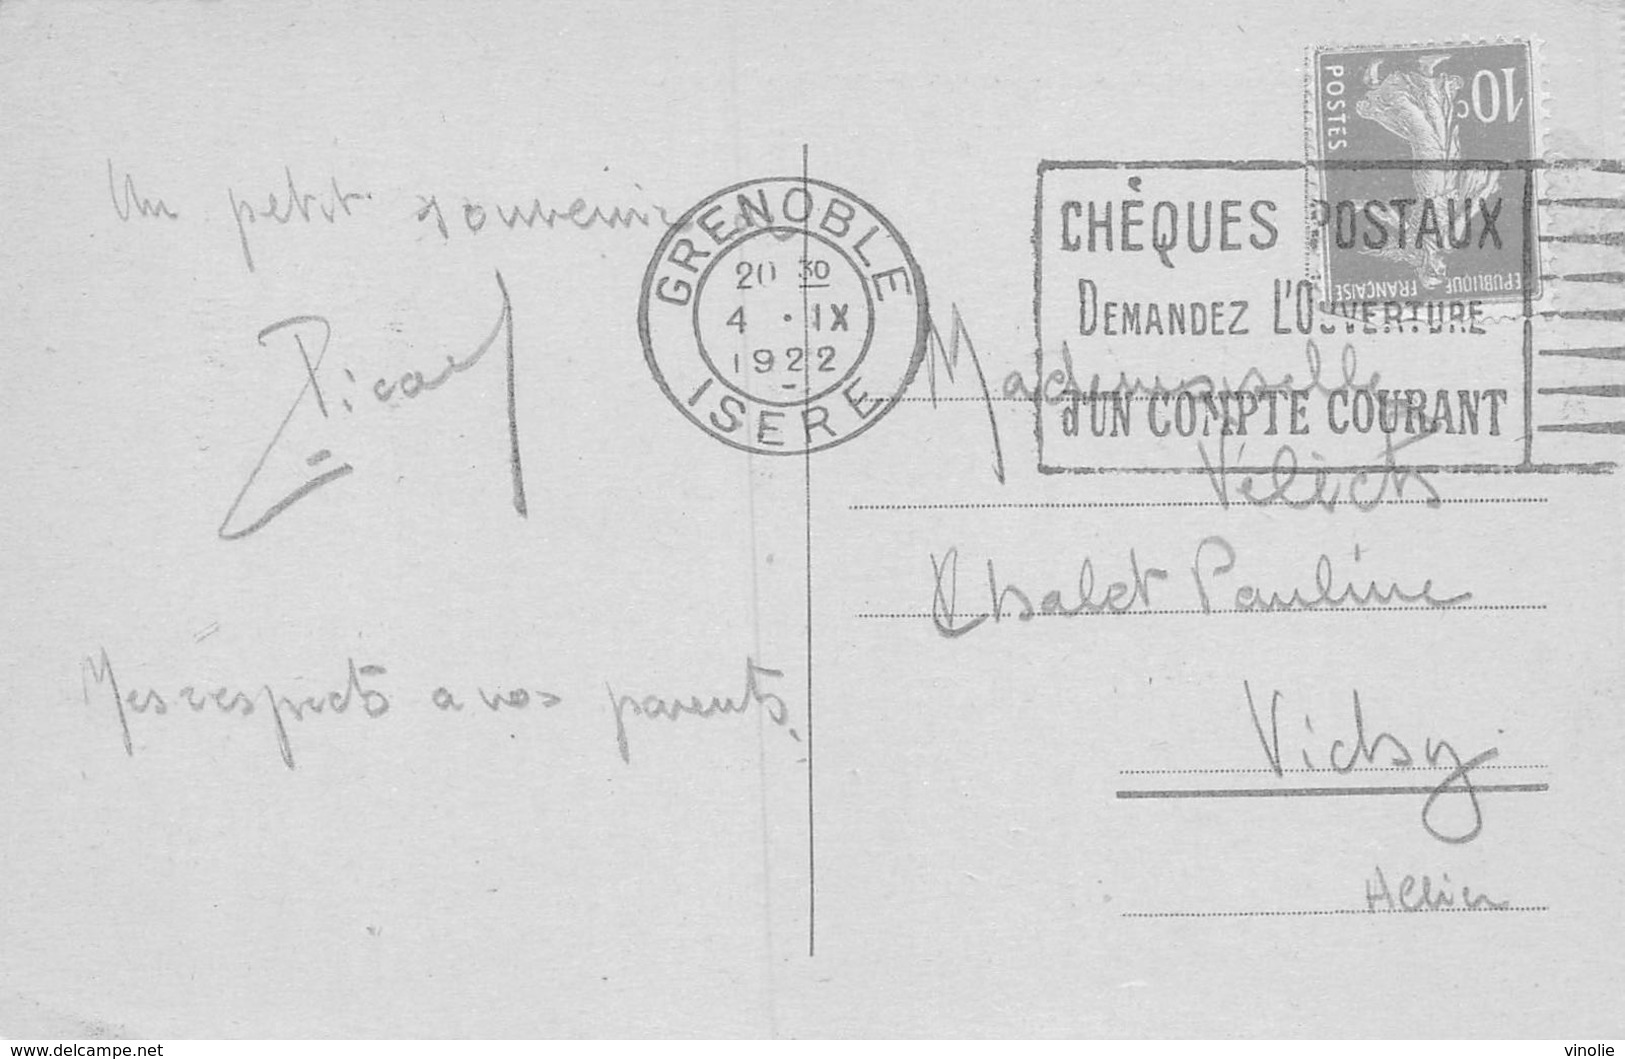 Un petit souvenir
Picard
Mes respects a vos parents.
GRENOBLE
20 30
4 · IX
1922
ISERE
10c
POSTES
REPUBLIQUE FRANÇAISE
CHÈQUES POSTAUX
DEMANDEZ L'OUVERTURE
d'UN COMPTE COURANT
Mademoiselle
Chalet Pauline
Vichy
Allier
www.delcampe.net
vinolie